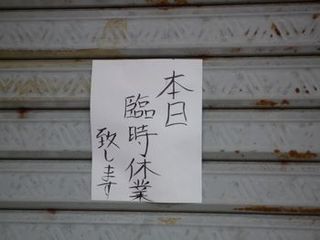 本日
臨時休業
致します